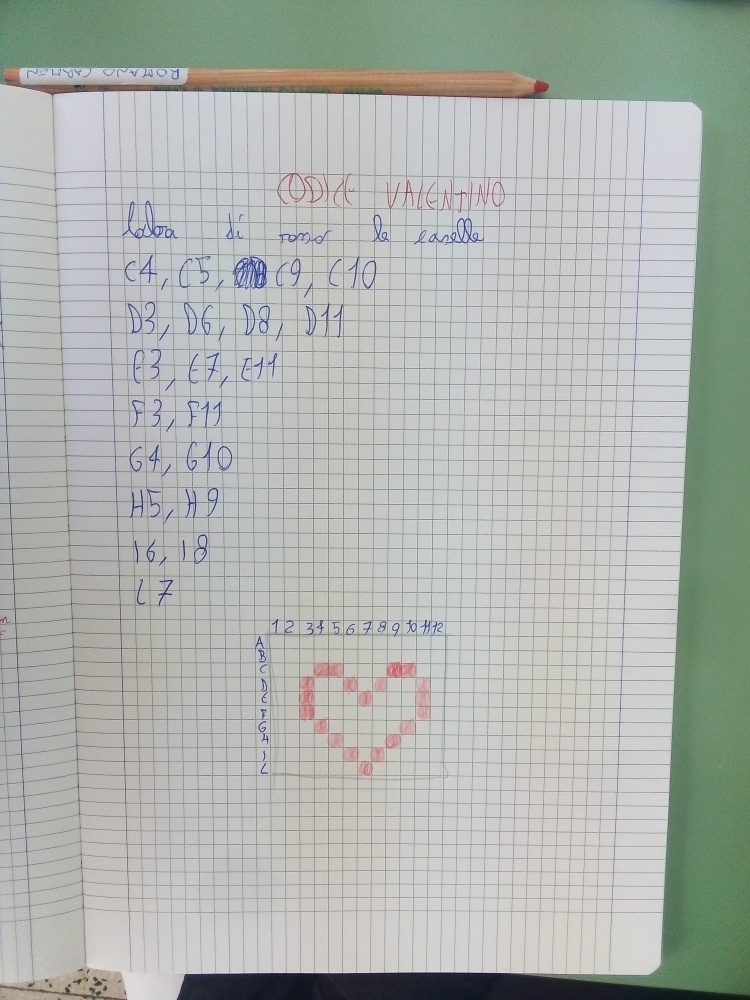 ROMANO CARMEN
CODICE VALENTINO
Colora di rosso le caselle
C4, C5, C9, C10
D3, D6, D8, D11
E3, E7, E11
F3, F11
G4, G10
H5, H9
I6, I8
L7
1 2 3 4 5 6 7 8 9 10 11 12
A
B
C
D
E
F
G
H
I
L